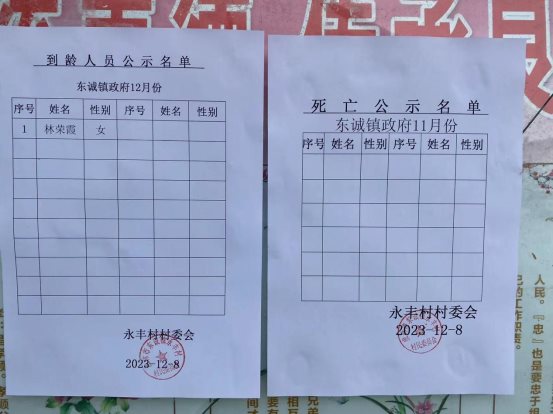 到龄人员公示名单
东诚镇政府12月份
序号 姓名 性别 序号 姓名 性别
1 林荣霞 女
永丰村村委会
2023-12-8
死亡公示名单
东诚镇政府11月份
序号 姓名 性别 序号 姓名 性别
永丰村村委会
2023-12-8
人民。『忠』也是要忠于